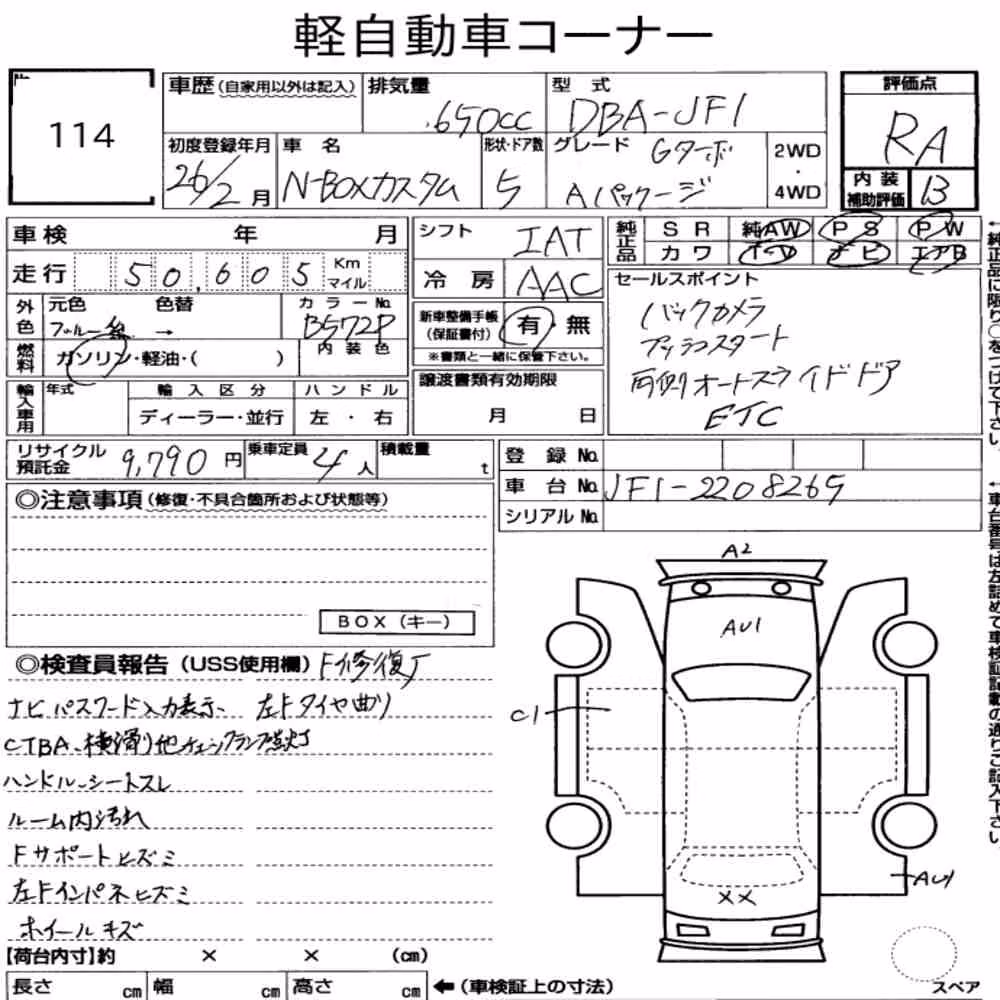 軽自動車コーナー
114
車歴(自家用以外は記入)
排気量
.650cc
型 式
DBA-JF1
評価点
RA
初度登録年月
26/2月
車 名
N-BOXカスタム
形状・ドア数
5
グレード
Gターボ
Aパッケージ
2WD
・
4WD
内 装
補助評価
B
車 検 年 月
走 行 50,605 Km
マイル
外色
元色 色替
ブルー系 →
カラーNo.
B572P
燃料
ガソリン・軽油・( )
内 装 色
輸入車用
年式
輸 入 区 分
ハ ン ド ル
ディーラー・並行
左 ・ 右
シフト
IAT
冷 房
AAC
新車整備手帳
(保証書付)
有・無
※書類と一緒に保管下さい。
譲渡書類有効期限
月 日
純正品
S R
純AW
P S
P W
カ ワ
ナ ビ
エアB
セールスポイント
バックカメラ
プッシュスタート
両側オートスライドドア
ETC
←純正品に限り○をつけて下さい。
リサイクル
預託金
9,790 円
乗車定員
4人
積載量
t
登 録 No.
車 台 No.
JF1-2208269
シリアル No.
←車台番号は左詰めで車検証記載の通りご記入下さい。
◎注意事項(修復・不具合箇所および状態等)
BOX(キー)
◎検査員報告(USS使用欄)F修復了
ナビパスワード入力表示、 左Fタイヤ曲り
CTBA、横滑り他チェックランプ点灯
ハンドル、シートスレ
ルーム内汚れ
Fサポートヒズミ
左Fインパネヒズミ
ホイールキズ
A2
AU1
C1
AU1
××
スペア
【荷台内寸】約 × × (cm)
長さ cm 幅 cm 高さ cm ←(車検証上の寸法)